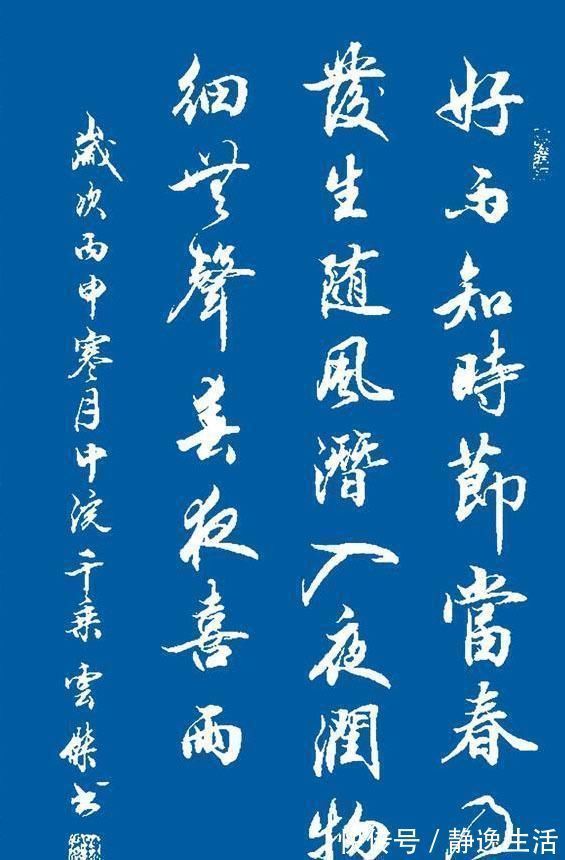 好雨知時節當春乃
發生随風潛入夜潤物
細無聲春夜喜雨
歲次丙申寒月中浣千乘雲傑書
快传号／静逸生活